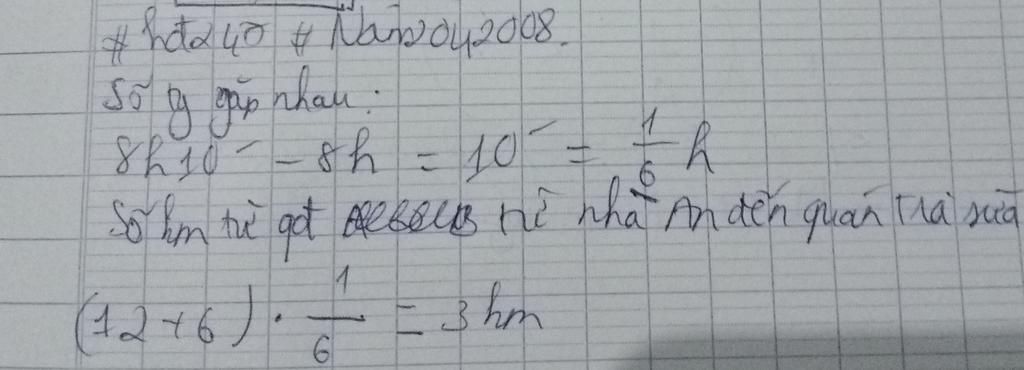 # hđt240 # Nano42008.
Số tg gặp nhau :
8h10' - 8h = 10' = 1/6 h
Số km từ gđ từ nhà An đến quán trà sữa
(12+6) . 1/6 = 3 km